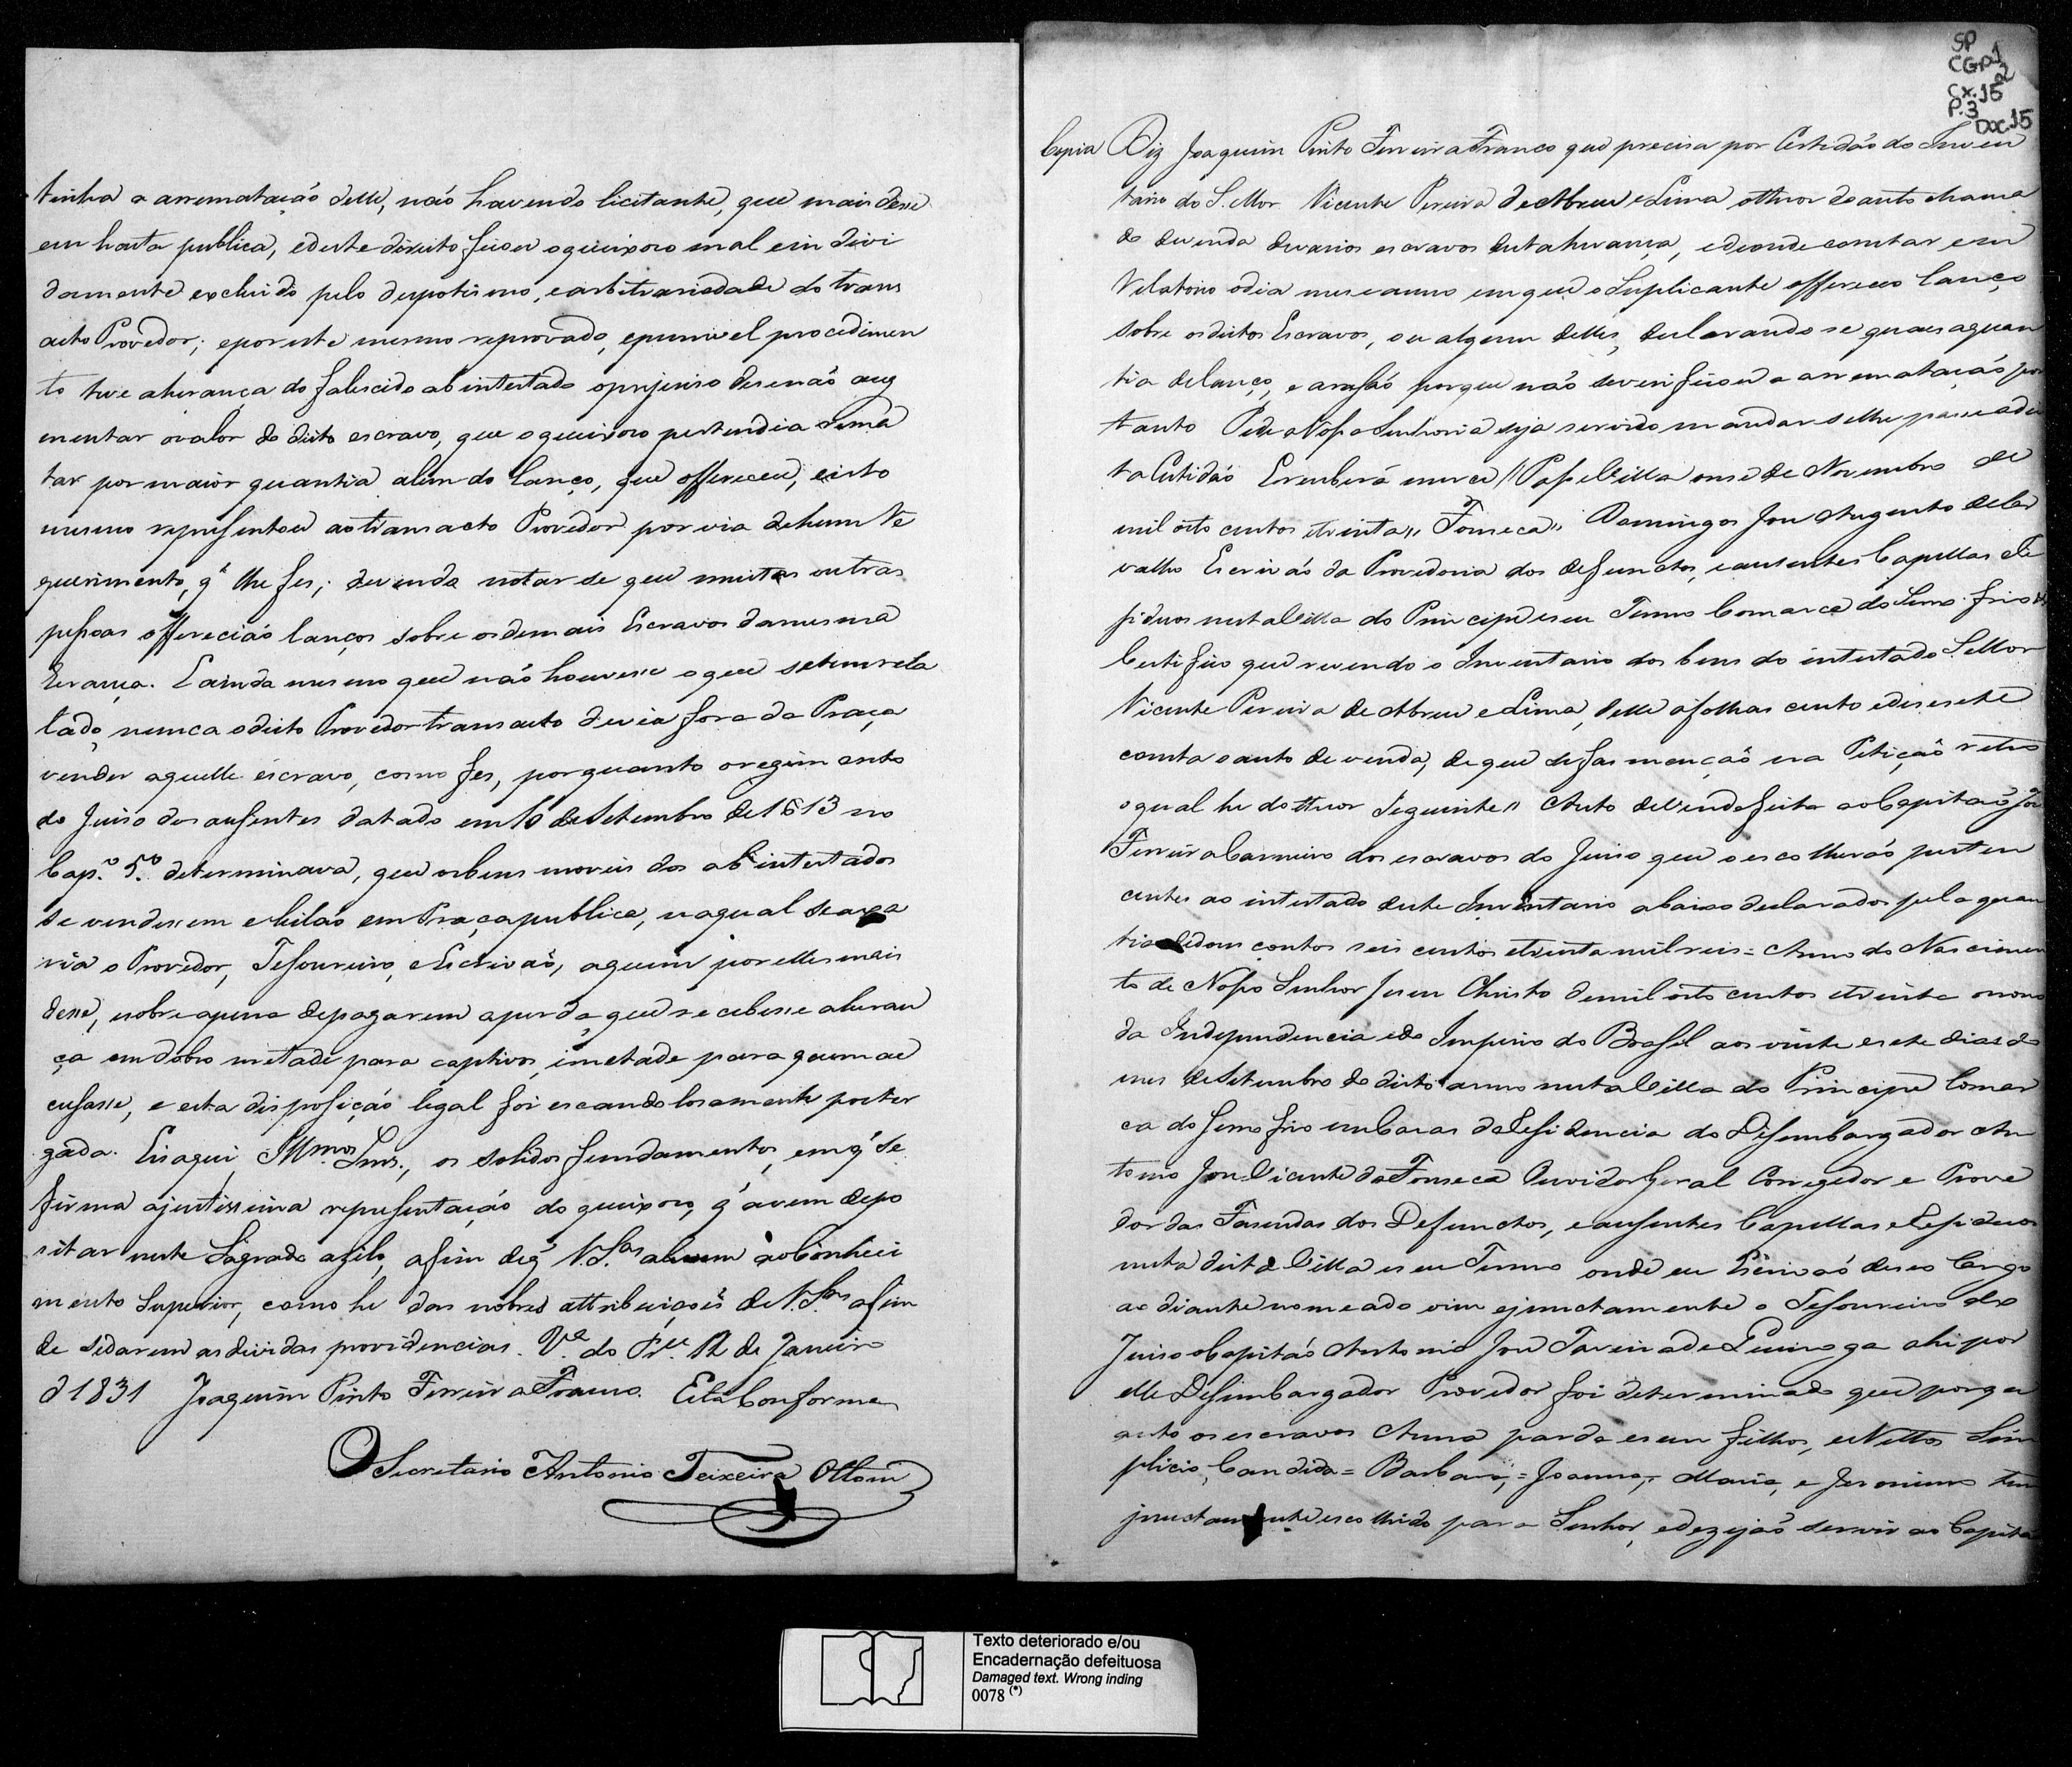 tinha a arrematação delle, não havendo licitante, que mais desse
em hasta publica, e deste direito ficou o queixoso mal e indivi
damente excluido pelo despotismo, e arbitrariedade do trans
acto Provedor; e por este mesmo reprovado, e punivel procedimen
to teve a herança do falescido abintestado o prejuiso de se não aug
mentar o valor do dito escravo, que o queixoso pertendia arrema
tar por maior quantia alem do lanço, que offereceu, e isto
mesmo representou ao transacto Provedor por via de hum Re
querimento, q' lhe fes; devendo notar se que muitas outras
pessoas offerecião lanços sobre os demais Escravos da mesma
Erança. E ainda mesmo que não houvesse o que se tem rela
tado, nunca o dito Provedor transacto devia fora da Praça
vender aquelle escravo, como fes, porquanto o regimento
do Juiso dos ausentes datado em 10 de Setembro de 1613 no
Cap.º 5.º determinava, que os bens moveis dos abintestados
se vendessem e leilão em Praça publica, na qual
ria o Provedor, Tesoureiro, e Escrivão, a quem por elles mais
desse, e sobre a pena de pagarem a perda que recebesse a heran
ça em dobro metade para captivos, e metade para quem ac
cusasse, e esta disposição legal foi escandolosamente poster
gada. Eis aqui Ill.mos Snrs., os solidos fundamentos, em q' se
firma a justissima representação do queixoso, q' a vem depo
sitar neste Sagrado asilo, afim de q' V. S.as ao Conheci
mento Superior, como he das nobres attribuiçoês de V. S.as afim
de se darem as devidas providencias. V.ª do Pr.e 12 de Janeiro
d 1831 Joaquim Pinto Ferreira Franco. Está Conforme
O Secretario Antonio Teixeira Ottoni
SP
CGP.1
Cx.15
2
P.3
Doc.15
Copia Diz Joaquim Pinto Ferreira Franco que precisa por Certidão do Inven
tario do S. Mor Vicente Pereira de Abreu e Lima o theor do auto chama
do de venda de varios escravos desta herança, e de onde constar em
Relatorio o dia mes e anno em que o Suplicante offereceo lanço
sobre os ditos Escravos, ou algum delles, declarando se quaes a quan
tia do lanço, e a rasão porque não se verificou a arrematação por
tanto Pede a Vossa Senhoria seja servido mandar se lhe passe a di
ta Certidão E receberá merce // Passe Villa onse de Novembro de
mil oito centos e trinta // Fonseca // Domingos José Augusto de Car
valho Escrivão da Provedoria dos defunctos, e ausentes Capellas e Re
siduos nesta Villa do Principe e seu Termo Comarca do Serro frio
Certifico que revendo o Inventario dos bens do intestado S. Mor
Vicente Pereira de Abreu e Lima, delle a folhas cento e desesete
consta o auto de venda, de que se fas menção na Petição retro
o qual he do theor Seguinte // Auto de Venda feita ao Capitão José
Ferreira Carneiro dos escravos do Juiso que o escolherão perten
centes ao intestado deste Inventario abaixo declarados pela quan
tia de dous contos seis centos e trinta mil reis = Anno do Nascimen
to de Nosso Senhor Jesu Christo de mil oito centos e trinta nono
da Independencia e do Imperio do Brasil aos vinte e sete dias do
mes de Setembro do dito anno nesta Villa do Principe Comar
ca do Serro frio em Casas da Residencia do Desembargador An
tonio José Vicente da Fonseca Ouvidor Geral Corregedor e Prove
dor das Fasendas dos Defunctos, e ausentes Capellas e Residuos
nesta dita Villa e seu Termo onde eu Escrivão de seo Cargo
ao diante nomeado vim e junctamente o Tesoureiro do
Juiso o Capitão Antonio José Taveira de Queiroga ahi por
elle Desembargador Provedor foi determinado que porqu
anto os escravos Anna parda e seus filhos, e Nettos Sim
plicio, Candida = Barbara, = Joanna, = Maria, e Jeronimo tem
junctamente escolhido para Senhor, e dezejão servir ao Capitão
Texto deteriorado e/ou
Encadernação defeituosa
Damaged text. Wrong inding
0078 (*)